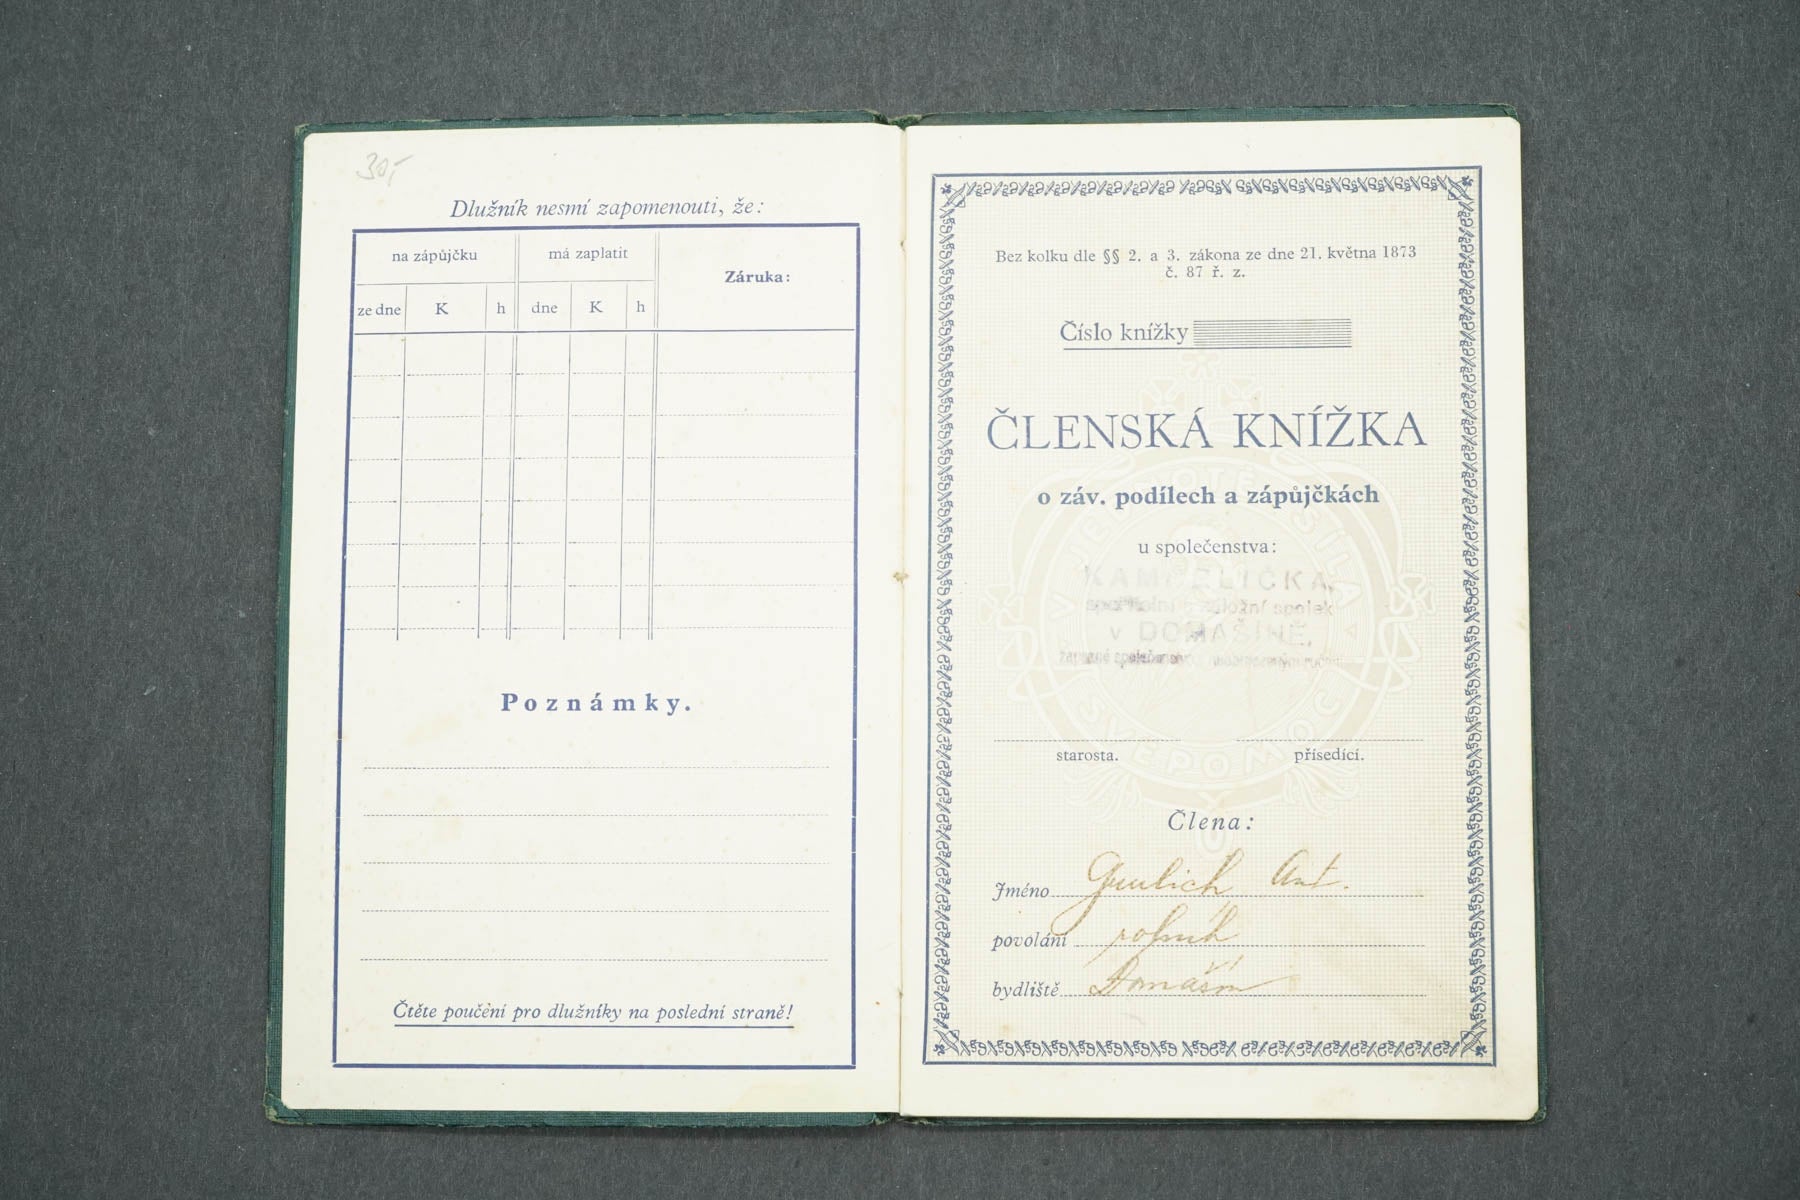 30,-
Dlužník nesmí zapomenouti, že:
na zápůjčku má zaplatit Záruka:
ze dne K h dne K h
Poznámky.
Čtěte poučení pro dlužníky na poslední straně!
Bez kolku dle §§ 2. a 3. zákona ze dne 21. května 1873
č. 87 ř. z.
Číslo knížky
ČLENSKÁ KNÍŽKA
o záv. podílech a zápůjčkách
u společenstva:
KAMPELIČKA,
spořitelní a záložní spolek
v DOMAŠÍNĚ,
zapsané společenstvo
V JEDNOTĚ SÍLA
SVÉPOMOC
starosta. přísedící.
Člena:
Jméno Ant.
povolání rolník
bydliště Domašín